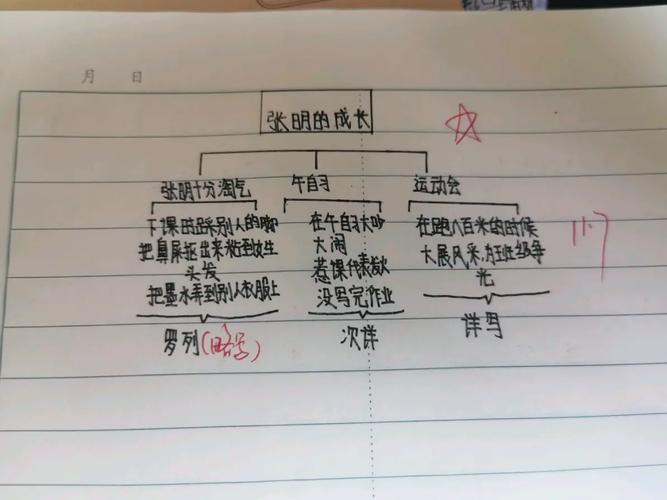 月 日
张明的成长
张明十分淘气 午自习 运动会
下课时踩别人的脚
把鼻屎抠出来粘到女生
头发
把墨水弄到别人衣服上
罗列(略写)
在午自习大吵
大闹
惹课代表
没写完作业
次详
在跑八百米的时候
大展风采,为班级争
光
详写